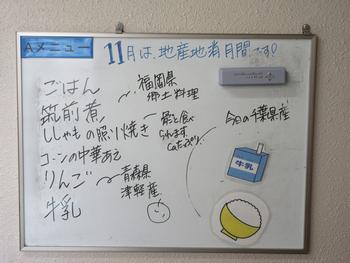 Aメニュー
11月は、地産地消月間です!
ごはん
筑前煮
福岡県
郷土料理
ししゃもの照り焼き
骨ごと食べ
られます
Caたっぷり
コーンの中華あえ
りんご
青森県
津軽産
牛乳
今日の千葉県産
牛乳